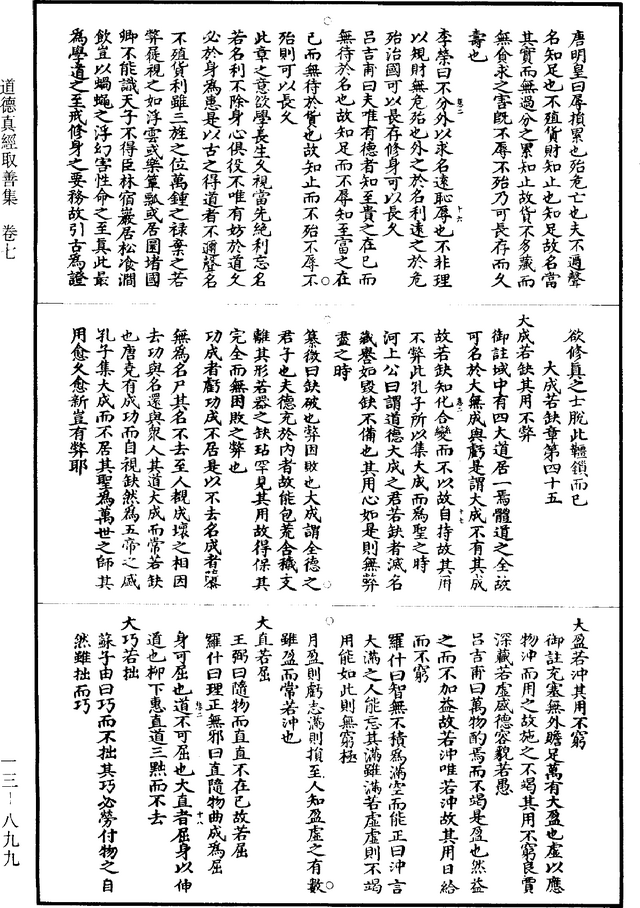 唐明皇曰辱損累也殆危亡也夫不邇聲
名知足也不殖貨財知止也知足故名當
其實而無過分之累知止故貨不多藏而
無貪求之害既不辱不殆乃可長存而久
壽也
李榮曰不分外以求名遠恥辱也不非理
以規財無危殆也外之於名利遠之於危
殆治國可以長存修身可以長久
呂吉甫曰夫唯有德者知至貴之在己而
無待於名也故知足而不辱知至富之在
己而無待於貨也故知止而不殆不辱不
殆則可以長久
此章之意欲學長生久視當先絶利忘名
若名利不除身心俱役不唯有妨於道久
必於身為患是以古之得道者不邇聲名
不殖貨利雖三旌之位萬鍾之禄棄之若
弊屣視之如浮雲或樂簞瓢或居圜堵國
卿不能識天子不得臣林宿巖居松飡澗
飲豈以蝸蠅之浮幻害性命之至真此最
為學道之至戒修身之要務故引古為證
欲修真之士脫此韁鎖而已
大成若缺章第四十五
大成若缺其用不弊
御註域中有四大道居一焉體道之全故
可名於大無成與虧是謂大成不有其成
故若缺知化合變而不以故自持故其用
不弊此孔子所以集大成而為聖之時
河上公曰謂道德大成之君若缺者滅名
藏譽如毀缺不備也其用心如是則無弊
盡之時
纂微曰缺破也弊困敗也大成謂全德之
君子也夫德充於內者故能包荒含穢支
離其形若器之缺玷罕見其用故得保其
完全而無困敗之弊也
功成者虧功成不居是以不去名成者隳
無為名尸其名不去至人觀成壞之相因
去功與名還與衆人其道大成而常若缺
也唐堯有成功而自視缺然為五帝之盛
孔子集大成而不居其聖為萬世之師其
用愈久愈新豈有弊耶
大盈若沖其用不窮
御註充塞無外贍足萬有大盈也虛以應
物沖而用之故施之不竭其用不窮良賈
深藏若虛盛德容貌若愚
呂吉甫曰萬物酌焉而不竭是盈也然益
之而不加益故若沖唯若沖故其用日給
而不窮
羅什曰智無不積為滿空而能正曰沖言
大滿之人能忘其滿雖滿若虛虛則不竭
用能如此則無窮極
月盈則虧志滿則損至人知盈虛之有數
雖盈而常若沖也
大直若屈
王弼曰隨物而直直不在己故若屈
羅什曰理正無邪曰直隨物曲成為屈
身可屈也道不可屈也大直者屈身以伸
道也柳下惠直道三黜而不去
大巧若拙
蘇子由曰巧而不拙其巧必勞付物之自
然雖拙而巧
道德真經取善集 卷七
一三-八九九